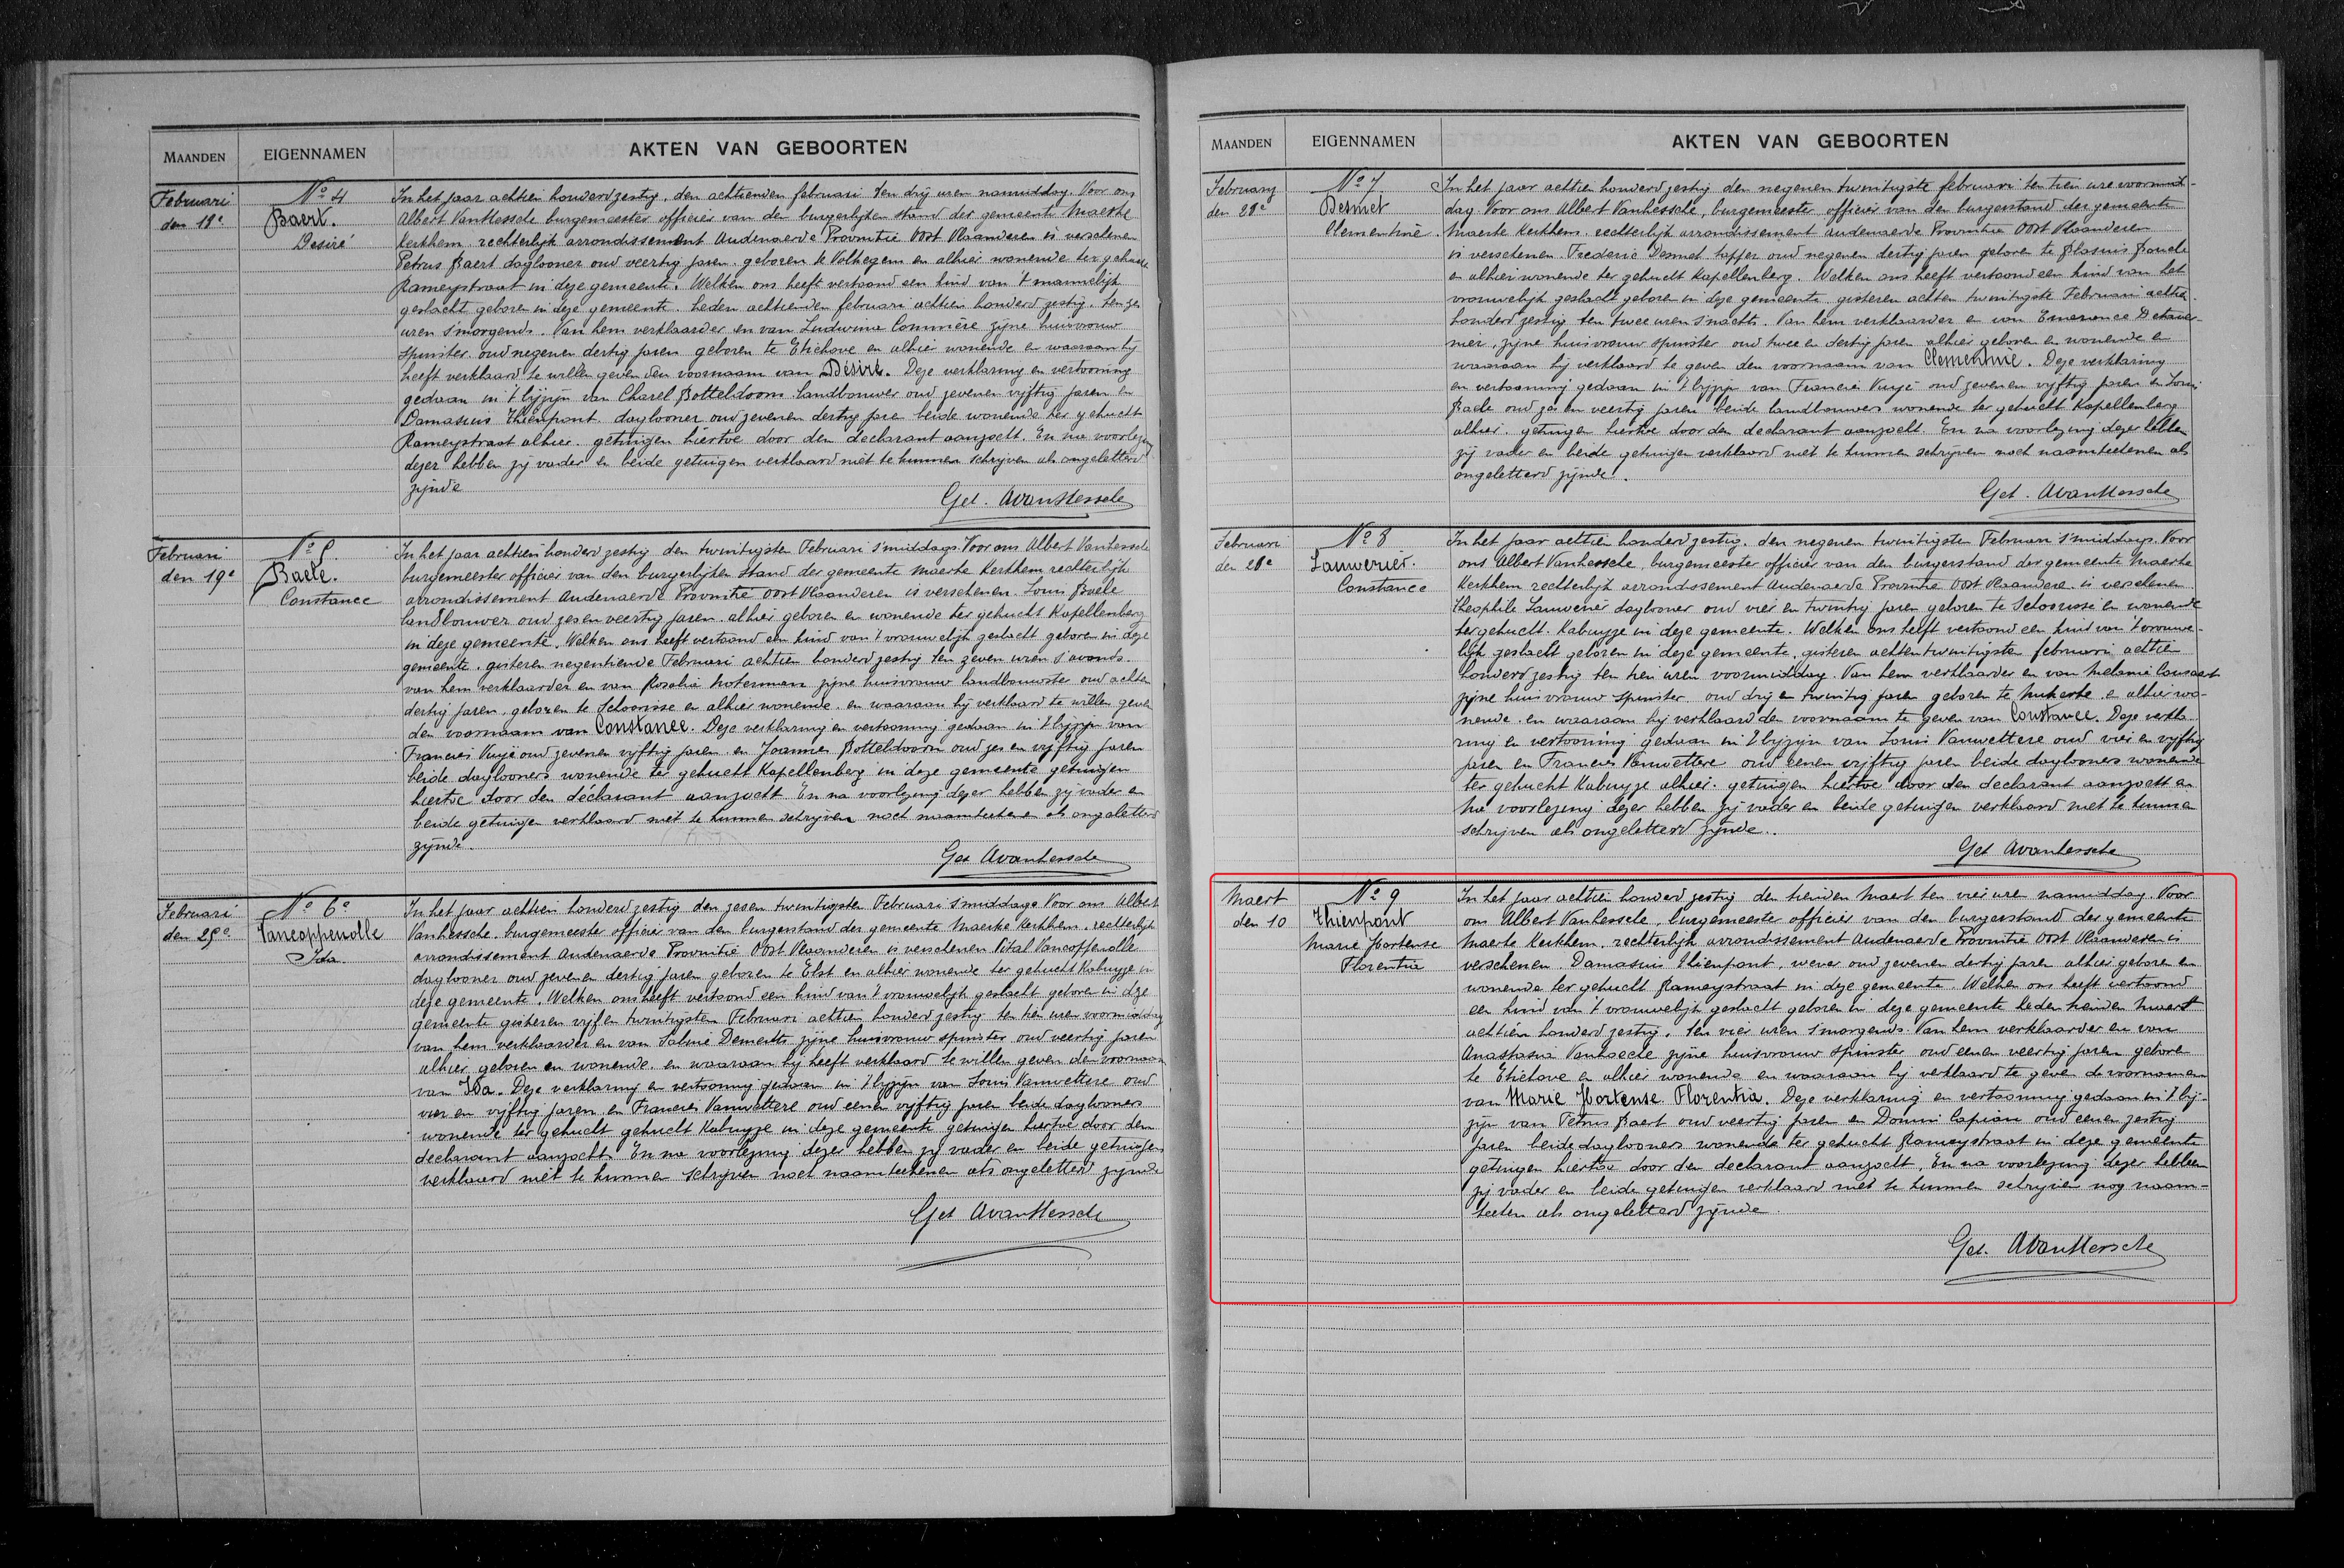 MAANDEN EIGENNAMEN AKTEN VAN GEBOORTEN
Februari
den 18e
No 4
Baert.
Desiré
In het jaar achtien honderd zestig, den achtienden februari ten drij uren namiddag. Voor ons
Albert VanHessche burgemeester officier van den burgerlijken stand der gemeente Maerke
Kerkhem rechterlijk arrondissement Audenaerde Provintie Oost Vlaanderen is verschenen
Petrus Baert daglooner oud veertig jaren geboren te Volkegem en alhier wonende ter gehucht
Rameystraat in deze gemeente. Welken ons heeft vertoond een kind van 't mannelijk
geslacht geboren in deze gemeente heden achtienden februari achtien honderd zestig ten zes
uren s'morgends. Van hem verklaarder en van Ludwina Commère zijne huisvrouw
spinster oud negenen dertig jaren geboren te Etichove en alhier wonende en waaraan hij
heeft verklaard te willen geven den voornaam van Désiré. Deze verklaring en vertooning
gedaan in 't bijzijn van Charel Botteldoorn landbouwer oud zevenen vijftig jaren en
Damasius Thienpont daglooner oud zevenen dertig jare beide wonende ter gehucht
Rameystraat alhier getuigen hiertoe door den declarant aanzocht. En na voorlezing
dezer hebben zij vader en beide getuigen verklaard niet te kunnen schrijven als ongeletterd
zijnde
Get. AvanHessche
Februari
den 19e
No 5
Baele.
Constance
In het jaar achtien honderd zestig den twintigsten Februari s'middags Voor ons Albert Vanhessche
burgemeester officier van den burgerlijken stand der gemeente Maerke Kerkhem rechterlijk
arrondissement Audenaerde Provintie Oost Vlaanderen is verschenen Louis Baele
landbouwer oud zes en veertig jaren alhier geboren en wonende ter gehucht Kapellenberg
in deze gemeente. Welken ons heeft vertoond een kind van 't vrouwelijk geslacht geboren in deze
gemeente gisteren negentiende Februari achtien honderd zestig ten zeven uren s'avonds
van hem verklaarder en van Rosalia Noterman zijne huisvrouw landbouwster oud achten
dertig jaren, geboren te Schoorisse en alhier wonende en waaraan hij verklaard te willen geven
den voornaam van Constance. Deze verklaring en vertooning gedaan in 't bijzijn van
Francies Vuyé oud zevenen vijftig jaren en Joannes Botteldoorn oud zes en vijftig jaren
beide daglooners wonende ter gehucht Kapellenberg in deze gemeente getuigen
hiertoe door den déclarant aanzocht En na voorlezing dezer hebben zij vader en
beide getuigen verklaard niet te kunnen schrijven noch naamteekene als ongeletterd
zijnde.
Get Avanhessche
Februari
den 25e
No 6e
Vancoppenolle
Ida.
In het jaar achtien honderd zestig den zesen twintigsten Februari s'middags Voor ons Albert
Vanhessche burgemeester officier van den burgerstand der gemeente Maerke Kerkhem, rechterlijk
arrondissement Audenaerde Provintie Oost Vlaanderen is verschenen Vital Vancoppenolle
daglooner oud zevenen dertig jaren geboren te Elst en alhier wonende ter gehucht Kabuyze in
deze gemeente. Welken ons heeft vertoond een kind van 't vrouwelijk geslacht geboren in deze
gemeente gisteren vijfen twintigsten Februari achtien honderd zestig ten tien uren voormiddag
van hem verklaarder en van Sabine Demedts zijne huisvrouw spinster oud veertig jaren
alhier geboren en wonende en waaraan hij heeft verklaard te willen geven den voornaam
van Ida. Deze verklaring en vertooning gedaan in 't bijzijn van Louis Vanwettere oud
vier en vijftig jaren en Francies Vanwettere oud eenen vijftig jaren beide daglooners
wonende ter gehucht gehucht Kabuyze in deze gemeente getuigen hiertoe door den
declarant aanzocht. En na voorlezing dezer hebben zij vader en beide getuigen
verklaard niet te kunnen schrijven noch naamteekenen als ongeletterd zijnde
Get AvanHessche
MAANDEN EIGENNAMEN AKTEN VAN GEBOORTEN
Februarij
den 28e
No 7
Desmet
Clementine
In het jaar achtien honderd zestig den negenen twintigste februari ten tien ure voormid-
dag. Voor ons Albert Vanhessche, burgemeester officier van den burgerstand der gemeente
Maerke Kerkhem rechterlijk arrondissement audenaerde Provintie Oost Vlaanderen
is verschenen Frederic Desmet tapper oud negenen dertig jaren geboren te Blasius Boucle
en alhier wonende ter gehucht Kapellenberg. Welken ons heeft vertoond een kind van het
vrouwelijk geslacht geboren in deze gemeente gisteren achten twintigste Februari achtien
honderd zestig ten twee uren s'nachts. Van hem verklaarder en van Emerence Detaver-
nier, zijne huisvrouw spinster oud twee en dertig jaren alhier geboren en wonende en
waaraan hij verklaard te geven den voornaam van Clementine. Deze verklaring
en vertooning gedaan in 't bijzijn van Francies Vuyé oud zevenen vijftig jaren en Louis
Baele oud zes en veertig jaren beide landbouwers wonende ter gehucht Kapellenberg
alhier getuigen hiertoe door den declarant aanzocht. En na voorlezing dezer hebben
zij vader en beide getuigen verklaard niet te kunnen schrijven noch naamteekenen als
ongeletterd zijnde.
Get. AvanHessche
Februari
den 28e
No 8
Lauwerier.
Constance
In het jaar achtien honderd zestig den negenen twintigsten Februari s'middags. Voor
ons Albert Vanhessche, burgemeester officier van den burgerstand der gemeente Maerke
Kerkhem rechterlijk arrondissement Audenaerde Provintie Oost Vlaanderen is verschenen
Theophile Lauwerier daglooner oud vier en twintig jaren geboren te Schoorisse en wonende
ter gehucht Kabuyze in deze gemeente. Welken ons heeft vertoond een kind van 't vrouwe-
lijk geslacht geboren in deze gemeente, gisteren achten twintigsten februari achtien
honderd zestig ten tien uren voormiddag. Van hem verklaarder en van Melanie
zijne huisvrouw spinster oud drij en twintig jaren geboren te Nukerke en alhier wo-
nende en waaraan hij verklaard den voornaam te geven van Constance. Deze verkla-
ring en vertooning gedaan in 't bijzijn van Louis Vanwettere oud vier en vijftig
jaren en Francies Vanwettere oud eenen vijftig jaren beide daglooners wonende
ter gehucht Kabuyze alhier getuigen hiertoe door den declarant aanzocht en
na voorlezing dezer hebben zij vader en beide getuigen verklaard niet te kunnen
schrijven als ongeletterd zijnde.
Get Avanhessche
Maert
den 10
No 9
Thienpont
Marie Hortense
Florentia
In het jaar achtien honderd zestig den tienden Maert ten vier ure namiddag. Voor
ons Albert Vanhessche, burgemeester officier van den burgerstand der gemeente
Maerke Kerkhem, rechterlijk arrondissement Audenaerde Provintie Oost Vlaanderen is
verschenen Damasius Thienpont, wever oud zevenen dertig jaren alhier geboren en
wonende ter gehucht Rameystraat in deze gemeente. Welken ons heeft vertoond
een kind van 't vrouwelijk geslacht geboren in deze gemeente heden tienden Maert
achtien honderd zestig, ten vier uren s'morgends. Van hem verklaarder en van
Anastasia Vanhaecke zijne huisvrouw spinster oud eenen veertig jaren geboren
te Etichove en alhier wonende en waaraan hij verklaard te geven de voornamen
van Marie Hortense Florentia. Deze verklaring en vertooning gedaan in 't bij-
zijn van Petrus Baert oud veertig jaren en Domini Capiau oud eenen zestig
jaren beide daglooners wonende ter gehucht Rameystraat in deze gemeente
getuigen hiertoe door den declarant aanzocht, En na voorlezing dezer hebben
zij vader en beide getuigen verklaard niet te kunnen schrijven nog naam-
teeken als ongeletterd zijnde.
Get. AvanHessche